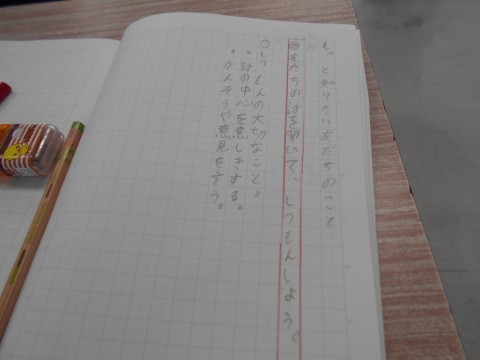 もっと知りたい友だちのこと
め友だちの話を聞いて、しつもんしよう。
○しつもんの大切なこと。
・話の中心を意しきする。
・かんそうや意見を言う。